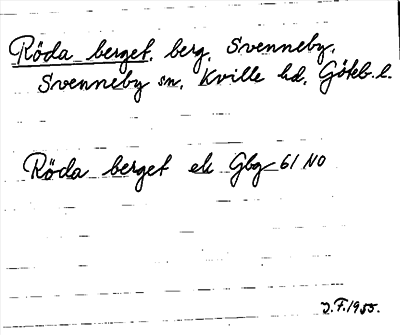 Röda berget, berg, Svenneby,
Svenneby sn, Kville hd, Göteb. l.
Röda berget ek Gbg 61 NO
J.F. 1955.